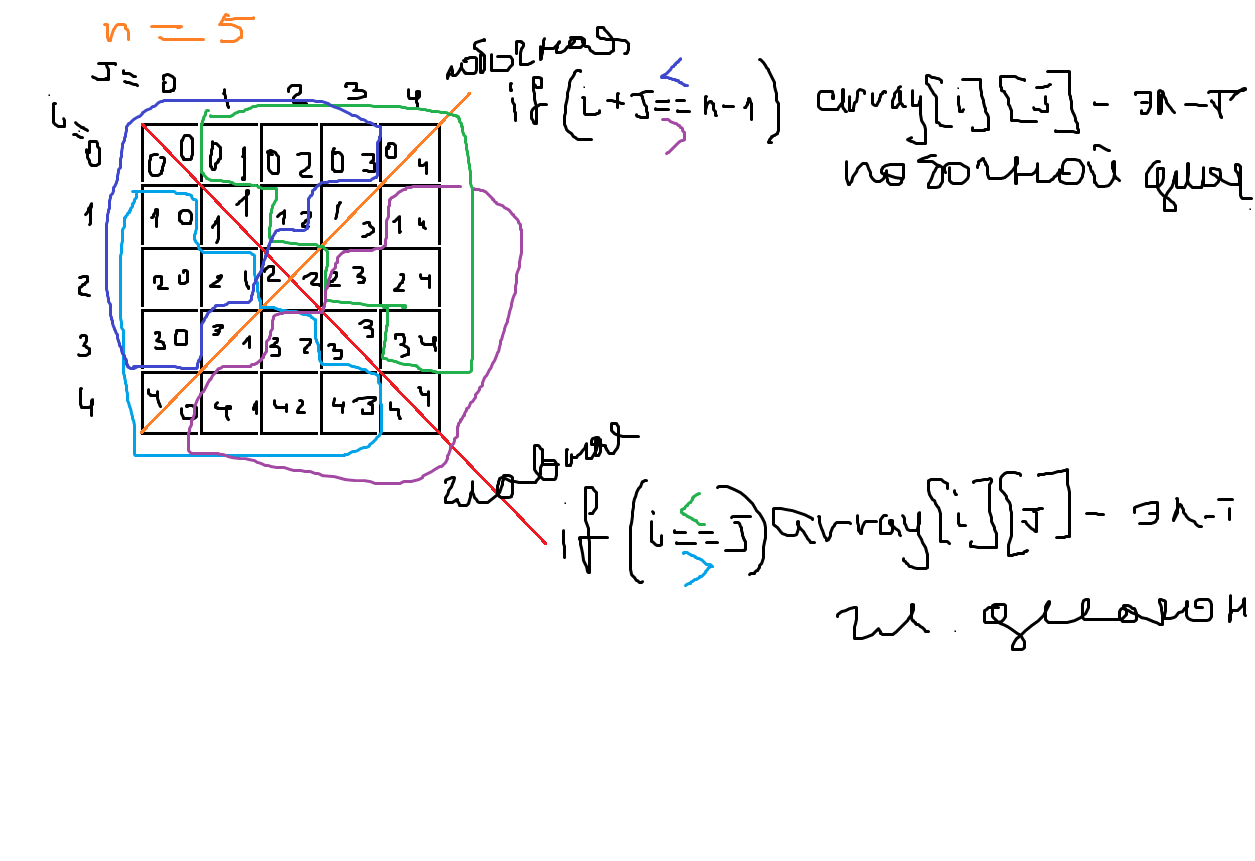 n = 5
J= 0 1 2 3 4
i=
0 00 01 02 03 04
1 10 11 12 13 14
2 20 21 22 23 24
3 30 31 32 33 34
4 40 41 42 43 44
побочная
<
if (i+J==n-1) array[i][J] - эл-т
>
побочной диаг
главная
<
if (i==J) array[i][J] - эл-т
>
гл. диагон